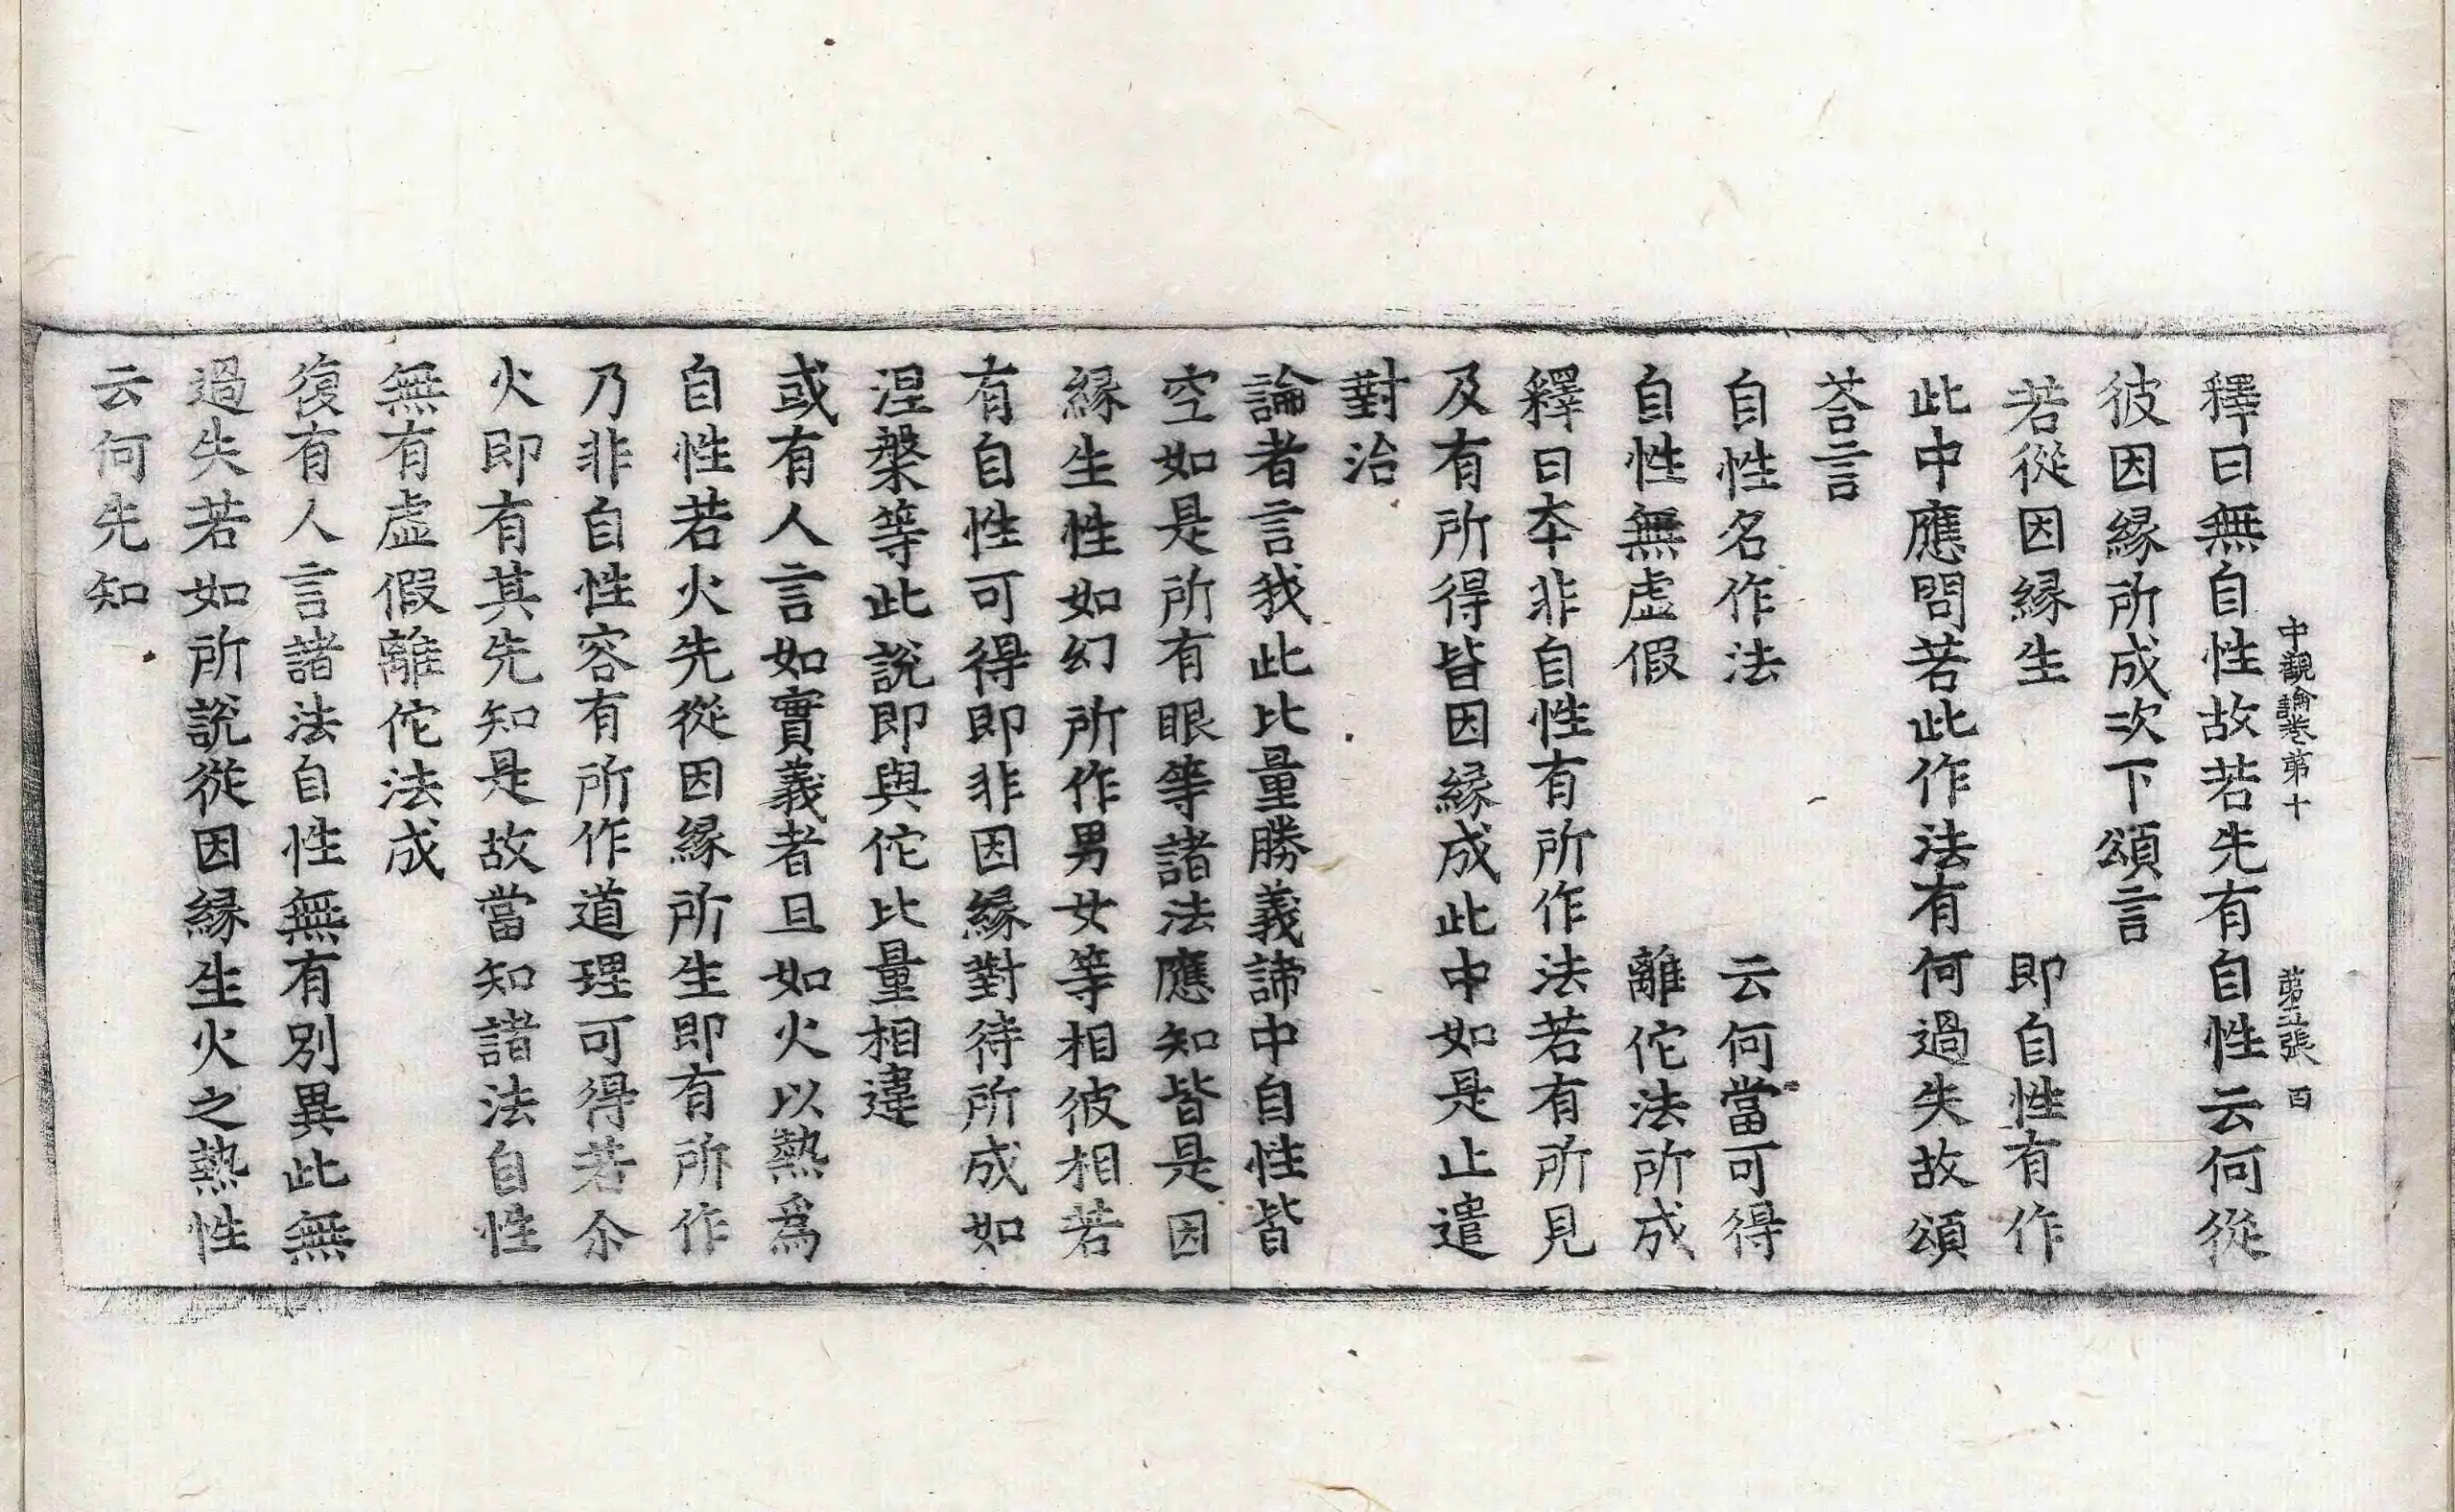 中觀論卷第十　第五張　百
釋曰無自性故若先有自性云何從
彼因緣所成次下頌言
若從因緣生　即自性有作
此中應問若此作法有何過失故頌
荅言
自性名作法　云何當可得
自性無虛假　離佗法所成
釋曰夲非自性有所作法若有所見
及有所得皆因緣成此中如是止遣
對治
論者言我此比量勝義諦中自性皆
空如是所有眼等諸法應知皆是因
緣生性如幻所作男女等相彼相若
有自性可得即非因緣對待所成如
涅槃等此說即與佗比量相違
或有人言如實義者且如火以熱爲
自性若火先從因緣所生即有所作
乃非自性容有所作道理可得若尒
火即有其先知是故當知諸法自性
無有虛假離佗法成
復有人言諸法自性無有別異此無
過失若如所說從因緣生火之熱性
云何先知